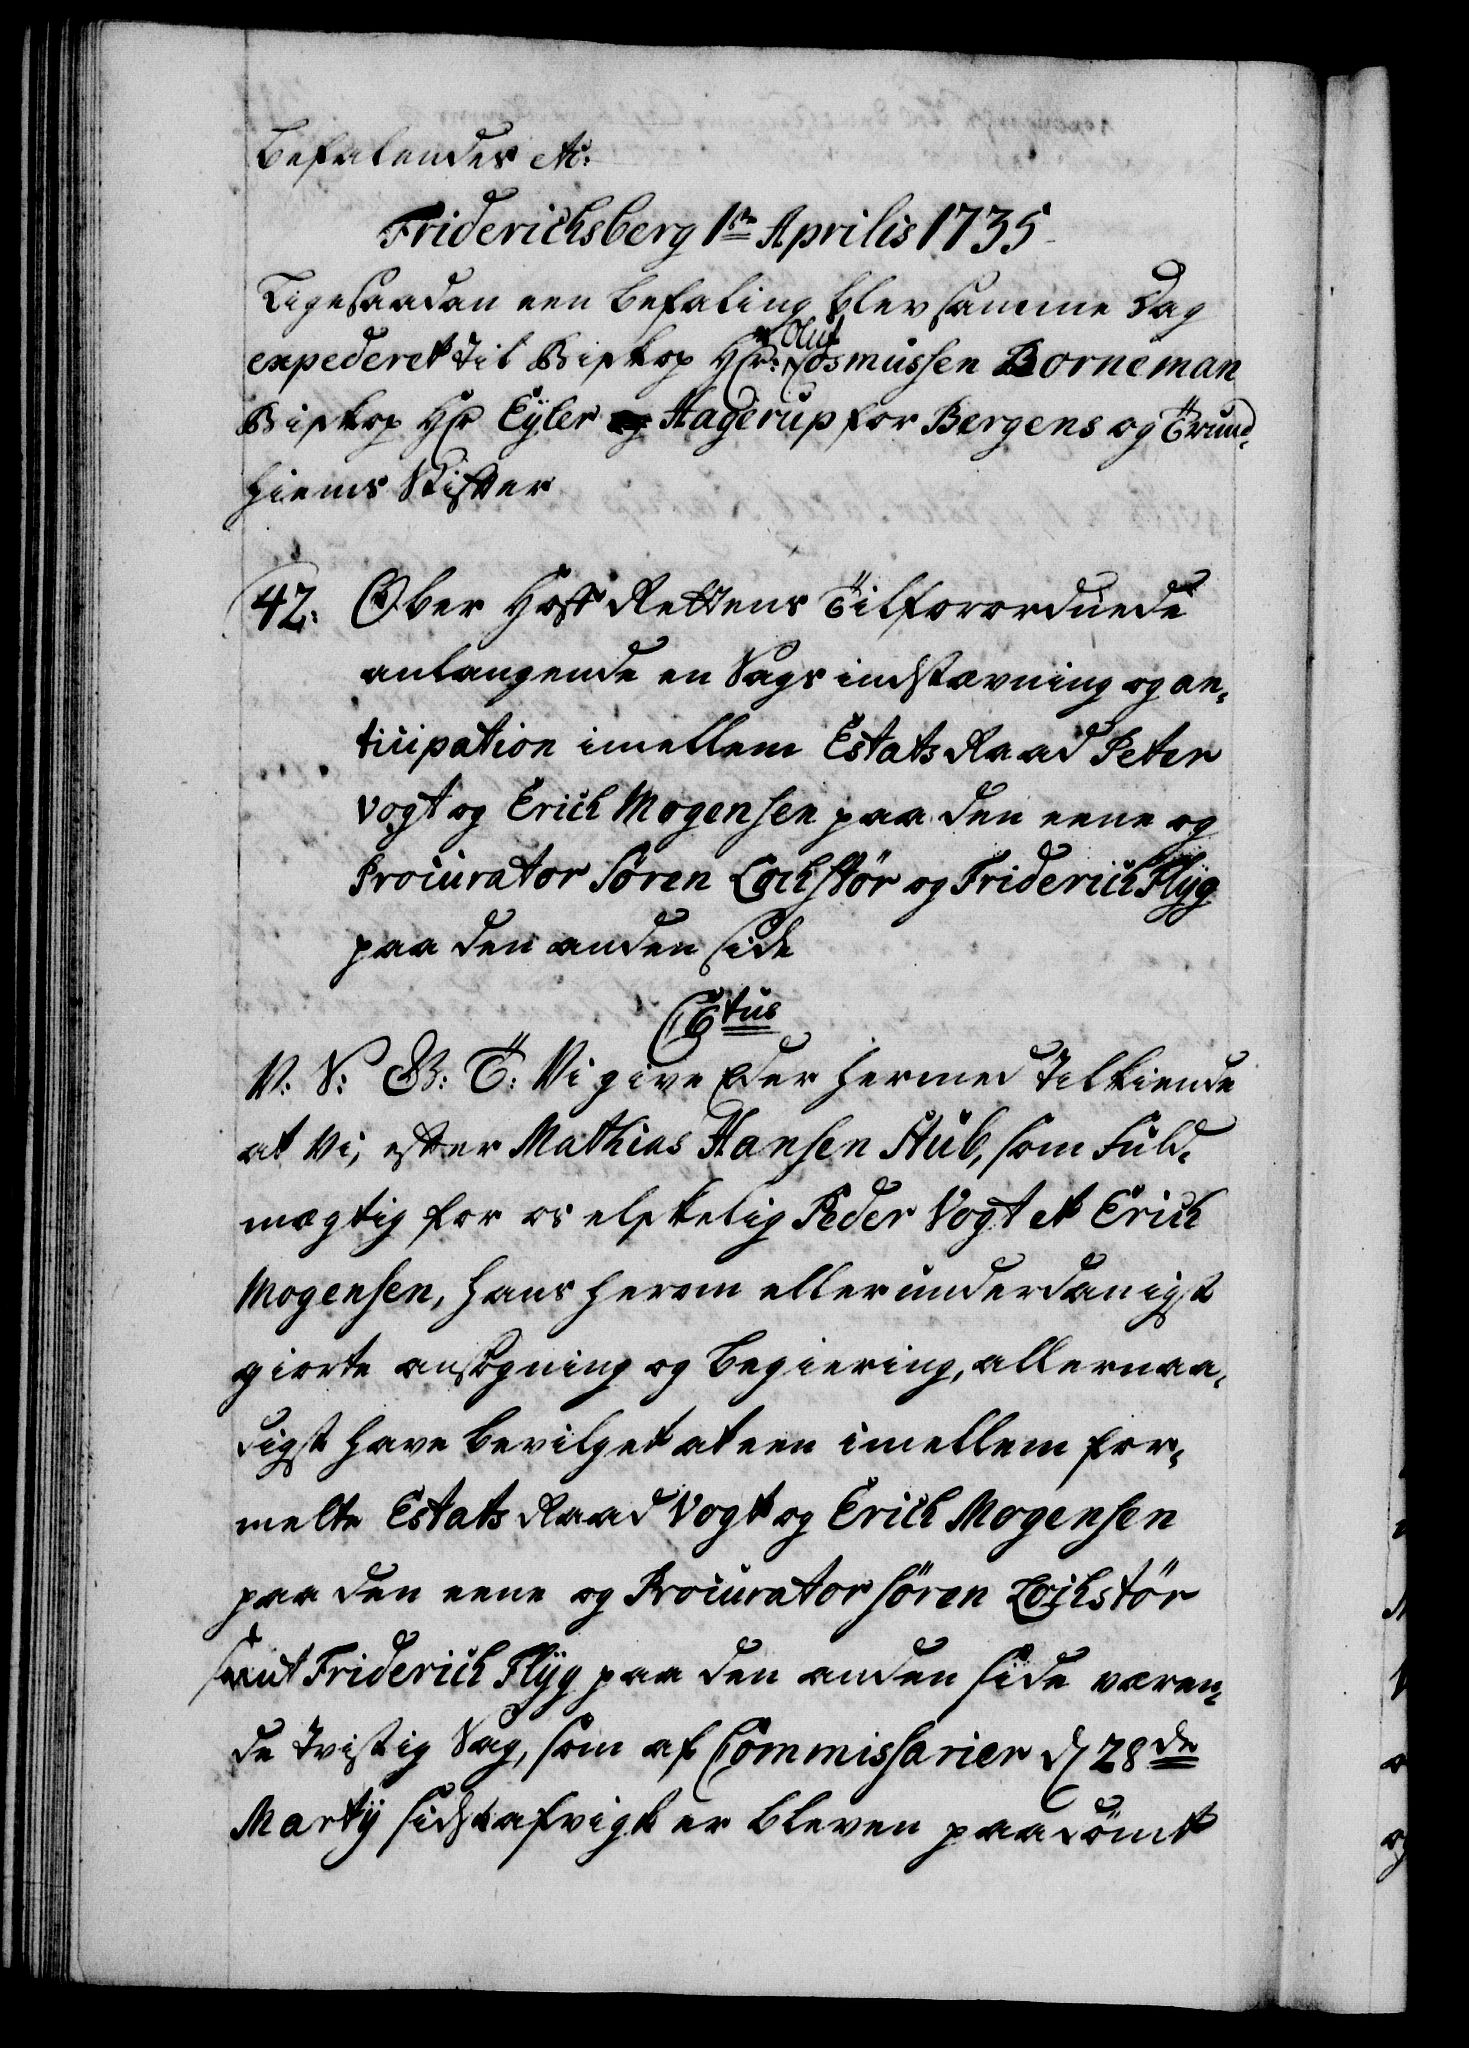 Befalendes etc:
Friderichsberg 1te Aprilis 1735
Ligesaadan een befaling blev samme Dag
expederet til Biskop Hr: Oluf Cosmussen Borneman
Biskop Hr Eyler Hagerup for Bergens og Trund-
hiems Stifter
42: Ober Hoff Rettens Tilforordnede
anlangende en Sags indstævning og an-
ticipation imellem Estats Raad Peter
Vogt og Erich Mogensen paa den eene og
Procurator Sören Lochstör og Friderich Flÿg
paa den anden side
Ctus
V: S: G: T: Vi give Eder hermed tilkiende
at Vi, efter Mathias Hansen Stub, som Fuld-
mægtig for os elskelig Peder Vogt et Erich
Mogensen, hans herom allerunderdanigst
giorte ansögning og begiering, allernaa-
digst have bevilget at een imellem for-
melte Estats Raad Vogt og Erich Mogensen
paa den eene og Procurator Sören Lochstör
samt Friderich Flÿg paa den anden side væren-
de tvistig Sag, som af Commissarier d 28de
Martÿ sidstafvigt er bleven paadömt